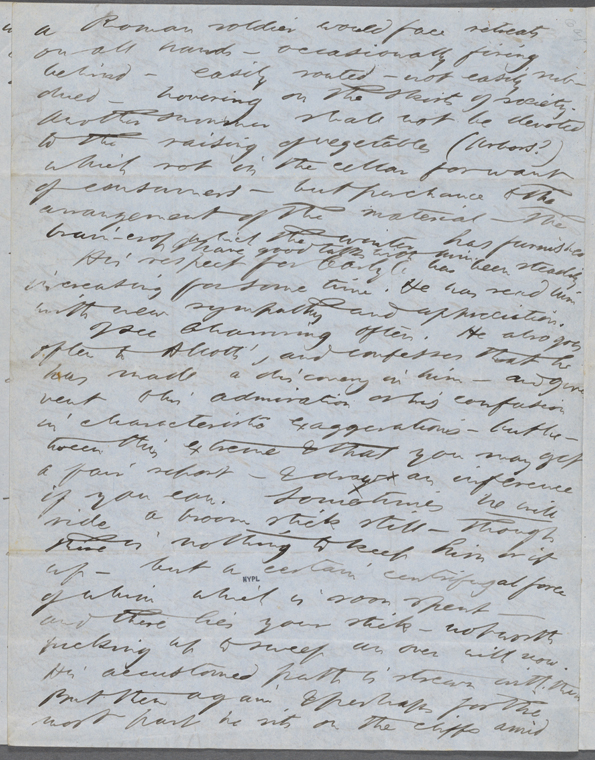 a Roman soldier would face retreats
on all hands – occasionally firing
behind – easily routed – not easily sub-
dued – hovering on the skirts of society.
Another summer shall not be devoted
to the raising of vegetables (Arbors?)
which rot in the cellar for want
of consumers – but perchance to the
arrangement of the material – the
brain-crop which the winter has furnished
I have good talks with him.
His respect for Carlyle has been steadily
increasing for some time. He has read him
with new sympathy and appreciation.
I see Channing often. He also goes
often to Alcott's, and confesses that he
has made a discovery in him – and gives
vent to his admiration or his confusion
in characteristic exaggerations – but be-
tween this extreme & that you may get
a fair report – & draw an inference
if you can. Sometimes he will
ride a broom stick still – though
there is nothing to keep him or it
up – but a certain centrifugal force
of whim which is soon spent –
and there lies your stick – not worth
picking up to sweep an oven with now.
His accustomed path is strewn with them
But then again, & perhaps for the
most part he sits on the cliffs amid
NYPL